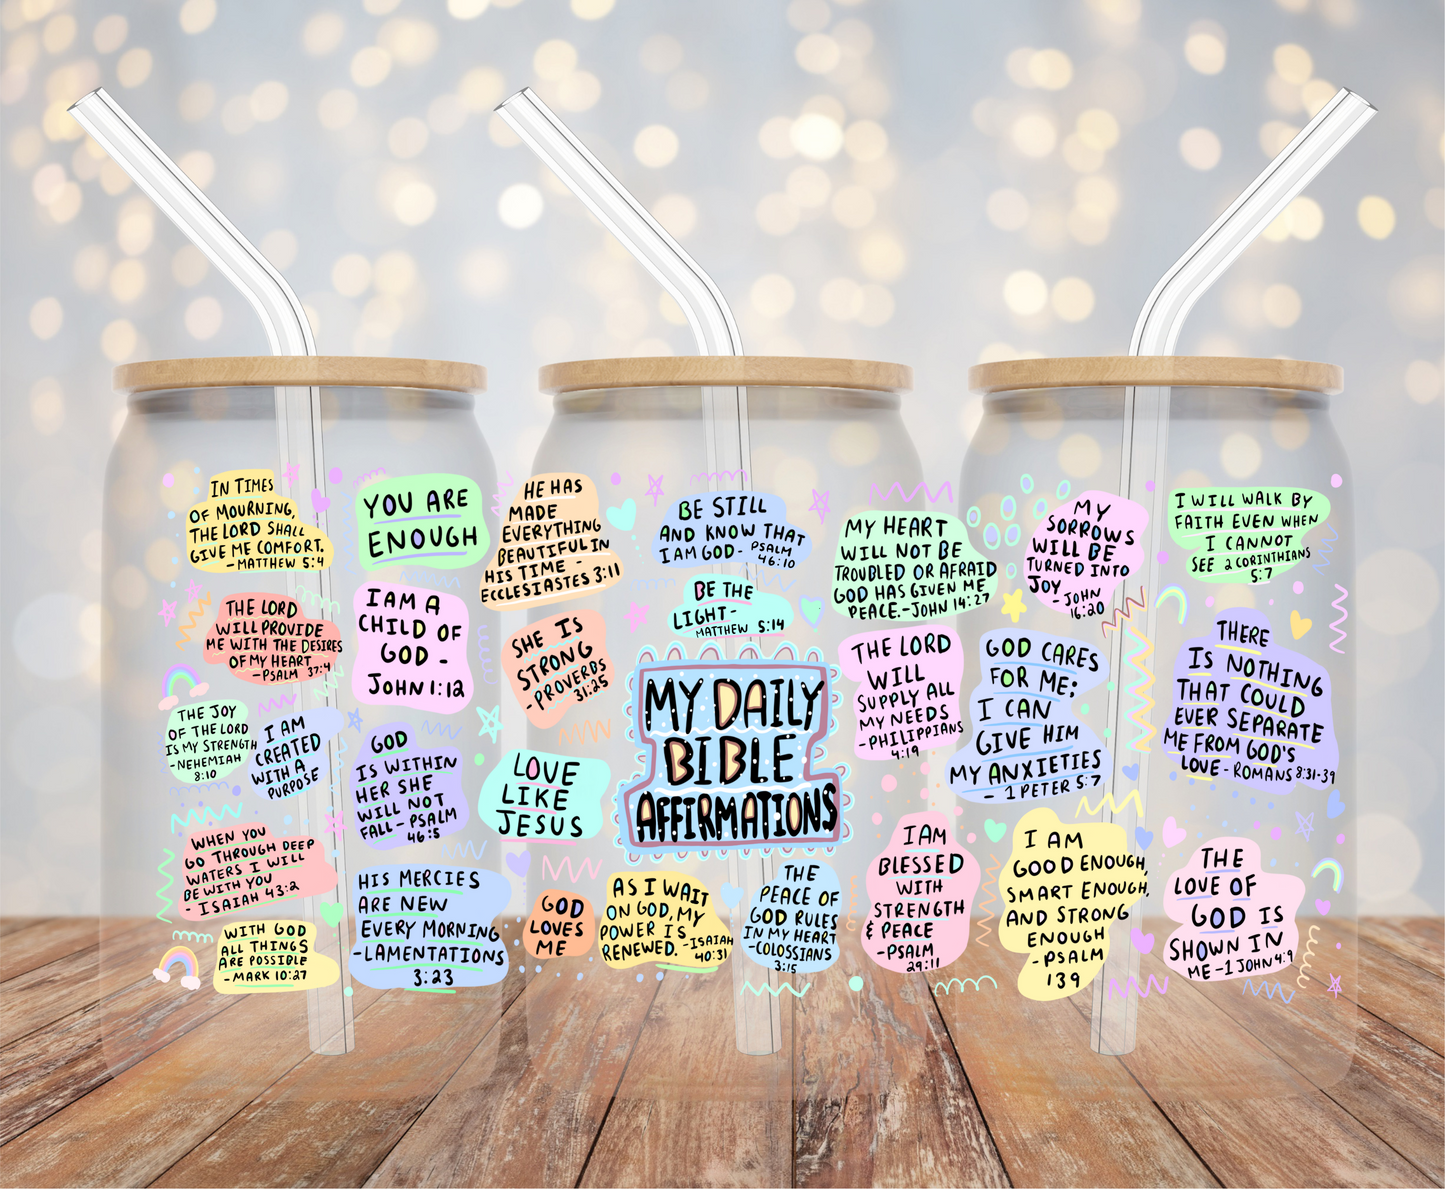 IN TIMES
OF MOURNING,
THE LORD SHALL
GIVE ME COMFORT.
-MATTHEW 5:4
THE LORD
WILL PROVIDE
ME WITH THE DESIRES
OF MY HEART
-PSALM 37:4
THE JOY
OF THE LORD
IS MY STRENGTH
-NEHEMIAH
8:10
I AM
CREATED
WITH A
PURPOSE
WHEN YOU
GO THROUGH DEEP
WATERS I WILL
BE WITH YOU
- ISAIAH 43:2
WITH GOD
ALL THINGS
ARE POSSIBLE
-MARK 10:27
YOU ARE
ENOUGH
I AM A
CHILD OF
GOD -
JOHN 1:12
GOD
IS WITHIN
HER SHE
WILL NOT
FALL - PSALM
46:5
HIS MERCIES
ARE NEW
EVERY MORNING
-LAMENTATIONS
3:23
HE HAS
MADE
EVERYTHING
BEAUTIFUL IN
HIS TIME -
ECCLESIASTES 3:11
SHE IS
STRONG
- PROVERBS
31:25
LOVE
LIKE
JESUS
GOD
LOVES
ME
BE STILL
AND KNOW THAT
I AM GOD - PSALM
46:10
BE THE
LIGHT -
MATTHEW 5:14
MY DAILY
BIBLE
AFFIRMATIONS
AS I WAIT
ON GOD, MY
POWER IS
RENEWED. -ISAIAH
40:31
THE
PEACE OF
GOD RULES
IN MY HEART
-COLOSSIANS
3:15
MY HEART
WILL NOT BE
TROUBLED OR AFRAID
GOD HAS GIVEN ME
PEACE.-JOHN 14:27
THE LORD
WILL
SUPPLY ALL
MY NEEDS
-PHILIPPIANS
4:19
I AM
BLESSED
WITH
STRENGTH
& PEACE
-PSALM
29:11
MY
SORROWS
WILL BE
TURNED INTO
JOY
- JOHN
16:20
GOD CARES
FOR ME;
I CAN
GIVE HIM
MY ANXIETIES
- 1 PETER 5:7
I AM
GOOD ENOUGH,
SMART ENOUGH,
AND STRONG
ENOUGH
-PSALM
139
I WILL WALK BY
FAITH EVEN WHEN
I CANNOT
SEE 2 CORINTHIANS
5:7
THERE
IS NOTHING
THAT COULD
EVER SEPARATE
ME FROM GOD'S
LOVE - ROMANS 8:31-39
THE
LOVE OF
GOD IS
SHOWN IN
ME -1 JOHN 4:9